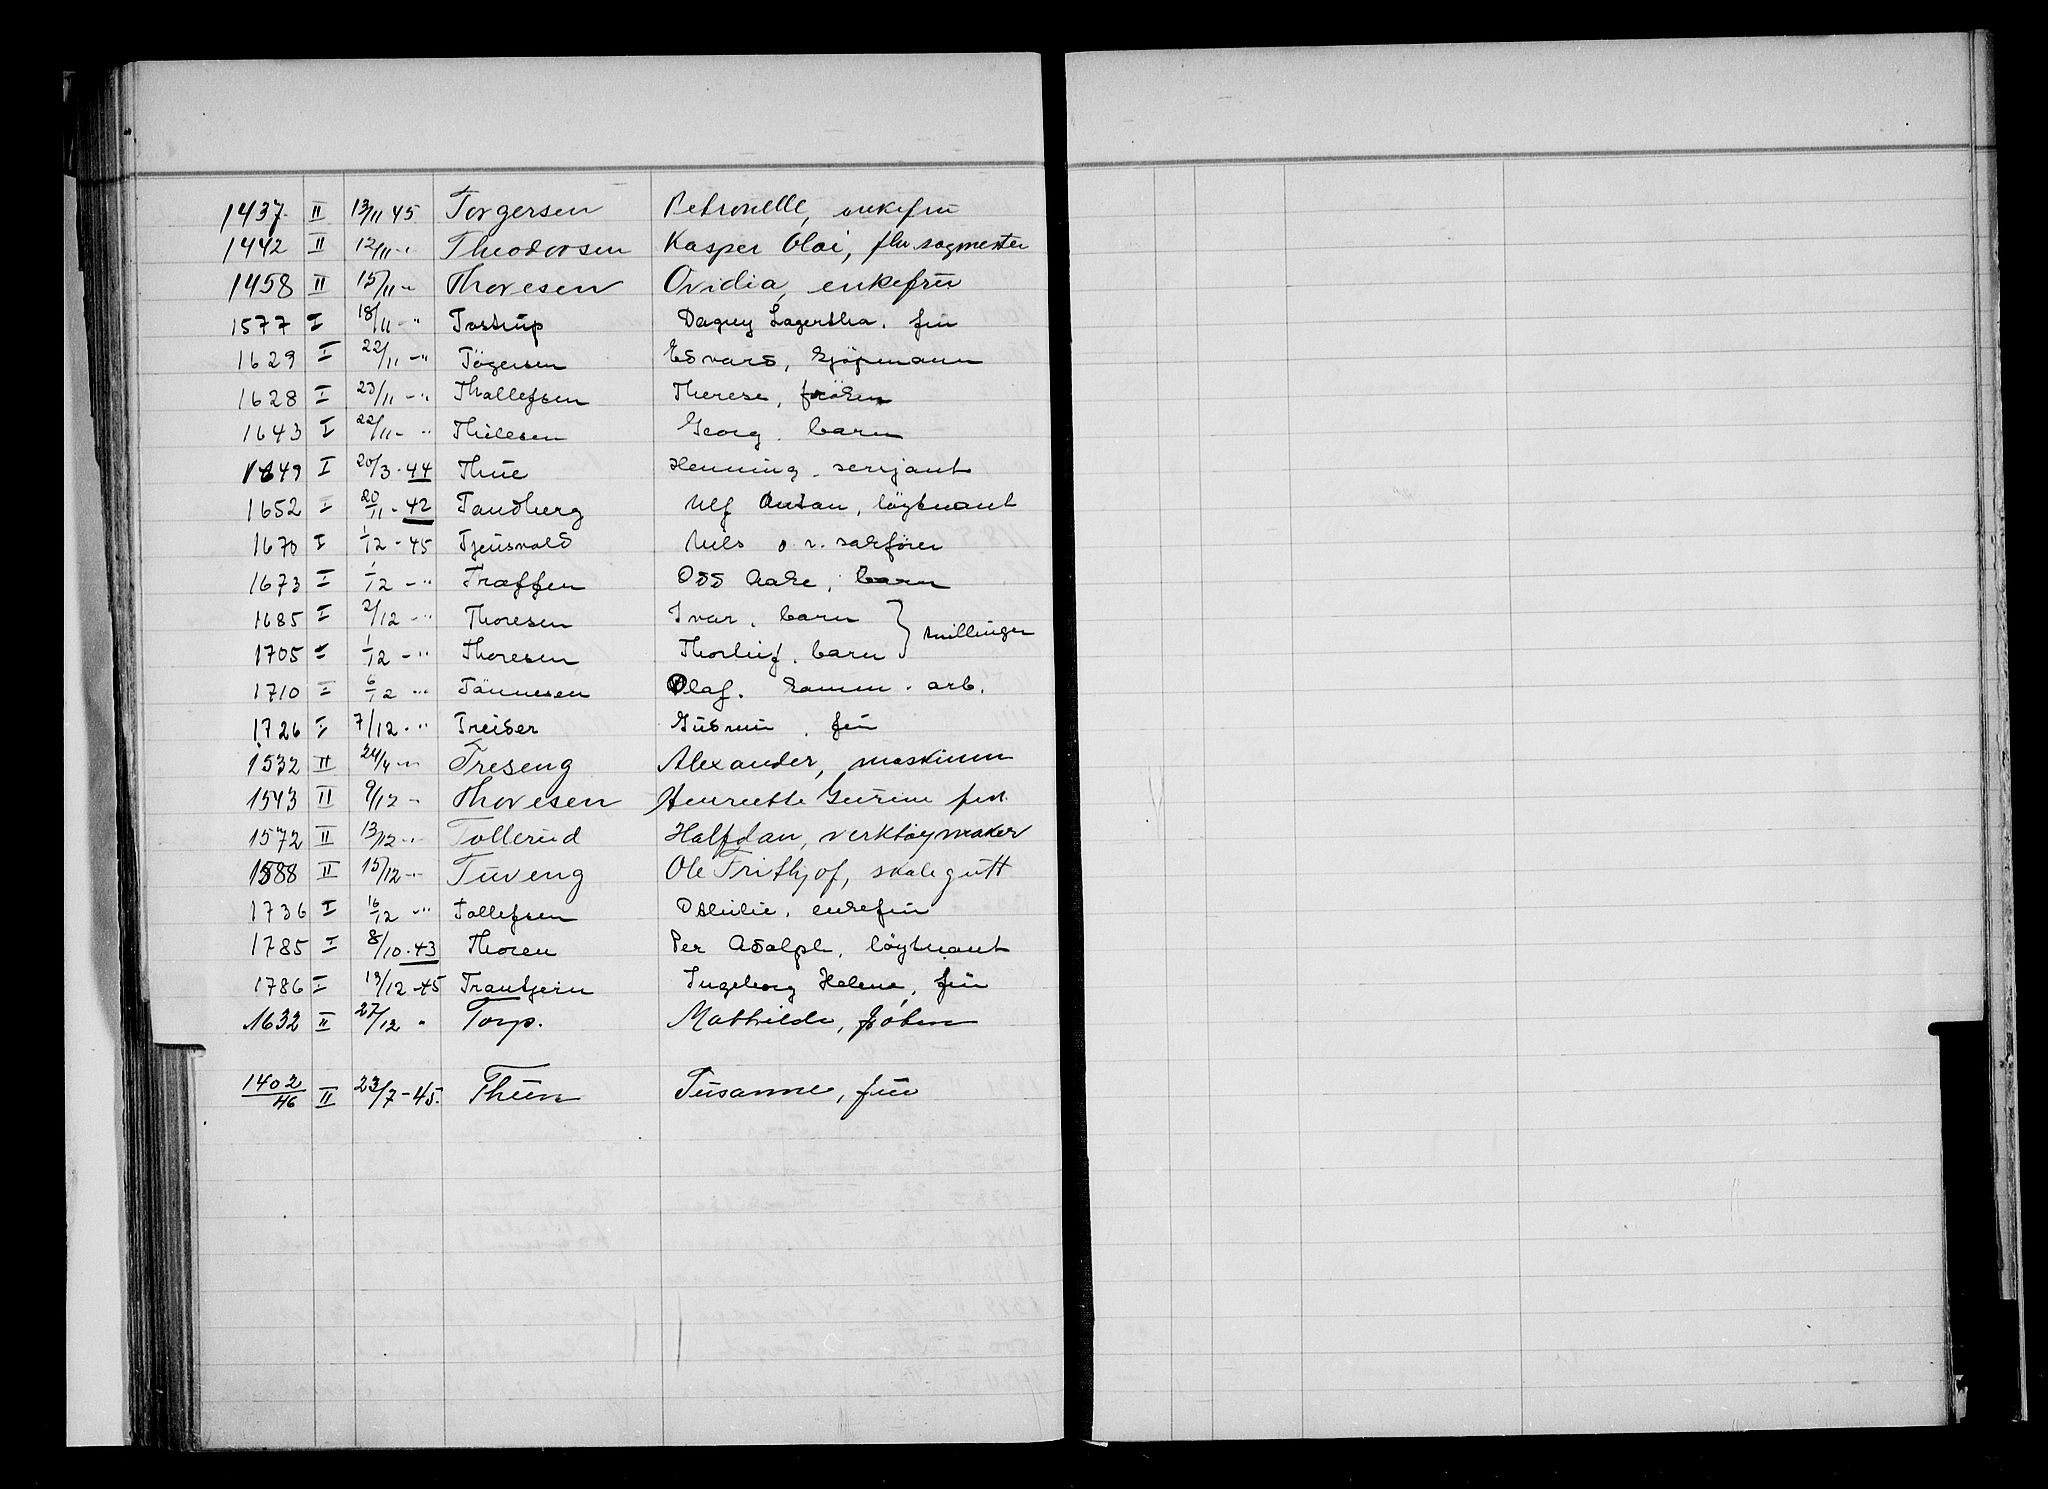 1437 II 13/11 45. Torgersen Petronelle, enkefru
1442 II 12/11 -" Theodorsen Kasper Olai, fhv. sagmester
1458 II 15/11 -" Thoresen Ovidia, enkefru
1577 I 18/11 -" Tostrup Dagny Lagertha. fru
1629 I 22/11 -" Tögersen Edvard, kjöpmann
1628 I 23/11 -" Thallefsen Therese, fröken
1643 I 22/11 - " Thilesen Georg. barn
1649 I 20/3 - 44 Thue Henning. serjant
1652 I 20/11 - 42 Tandberg Ulf Anton, löytnant
1670 I 1/12 - 45 Tjensvold Nils o.r. sakförer
1673 I 1/12 - " Træffen Odd Aake, barn
1685 I 2/12 - " Thoresen Ivar, barn } tvillinger
1705 I 1/12 - " Thoresen Thorleif. barn
1710 I 6/12 " Tönnesen Olaf. komm. arb.
1726 I 7/12 - " Treider Gudrun, fru
1532 II 24/4 -" Treseng Alexander, maskinm
1543 II 9/12 - Thoresen Henriette Gurine frk.
1572 II 13/12 -" Tollerud Halfdan, verktøymaker
1588 II 15/12 -" Tuveng Ole Frithjof, skolegutt
1736 I 16/12 " Tollefsen Othilie, enkefru
1785 I 8/10 - 43 Thoren Per Adolph, löytnant
1786 I 19/12 - 45 Trantjern Ingeborg Helene, fru
1632 II 27/12 " Torp. Mathilde, fröken
1402/46 II 23/7 - 45. Thun Susanne, fru